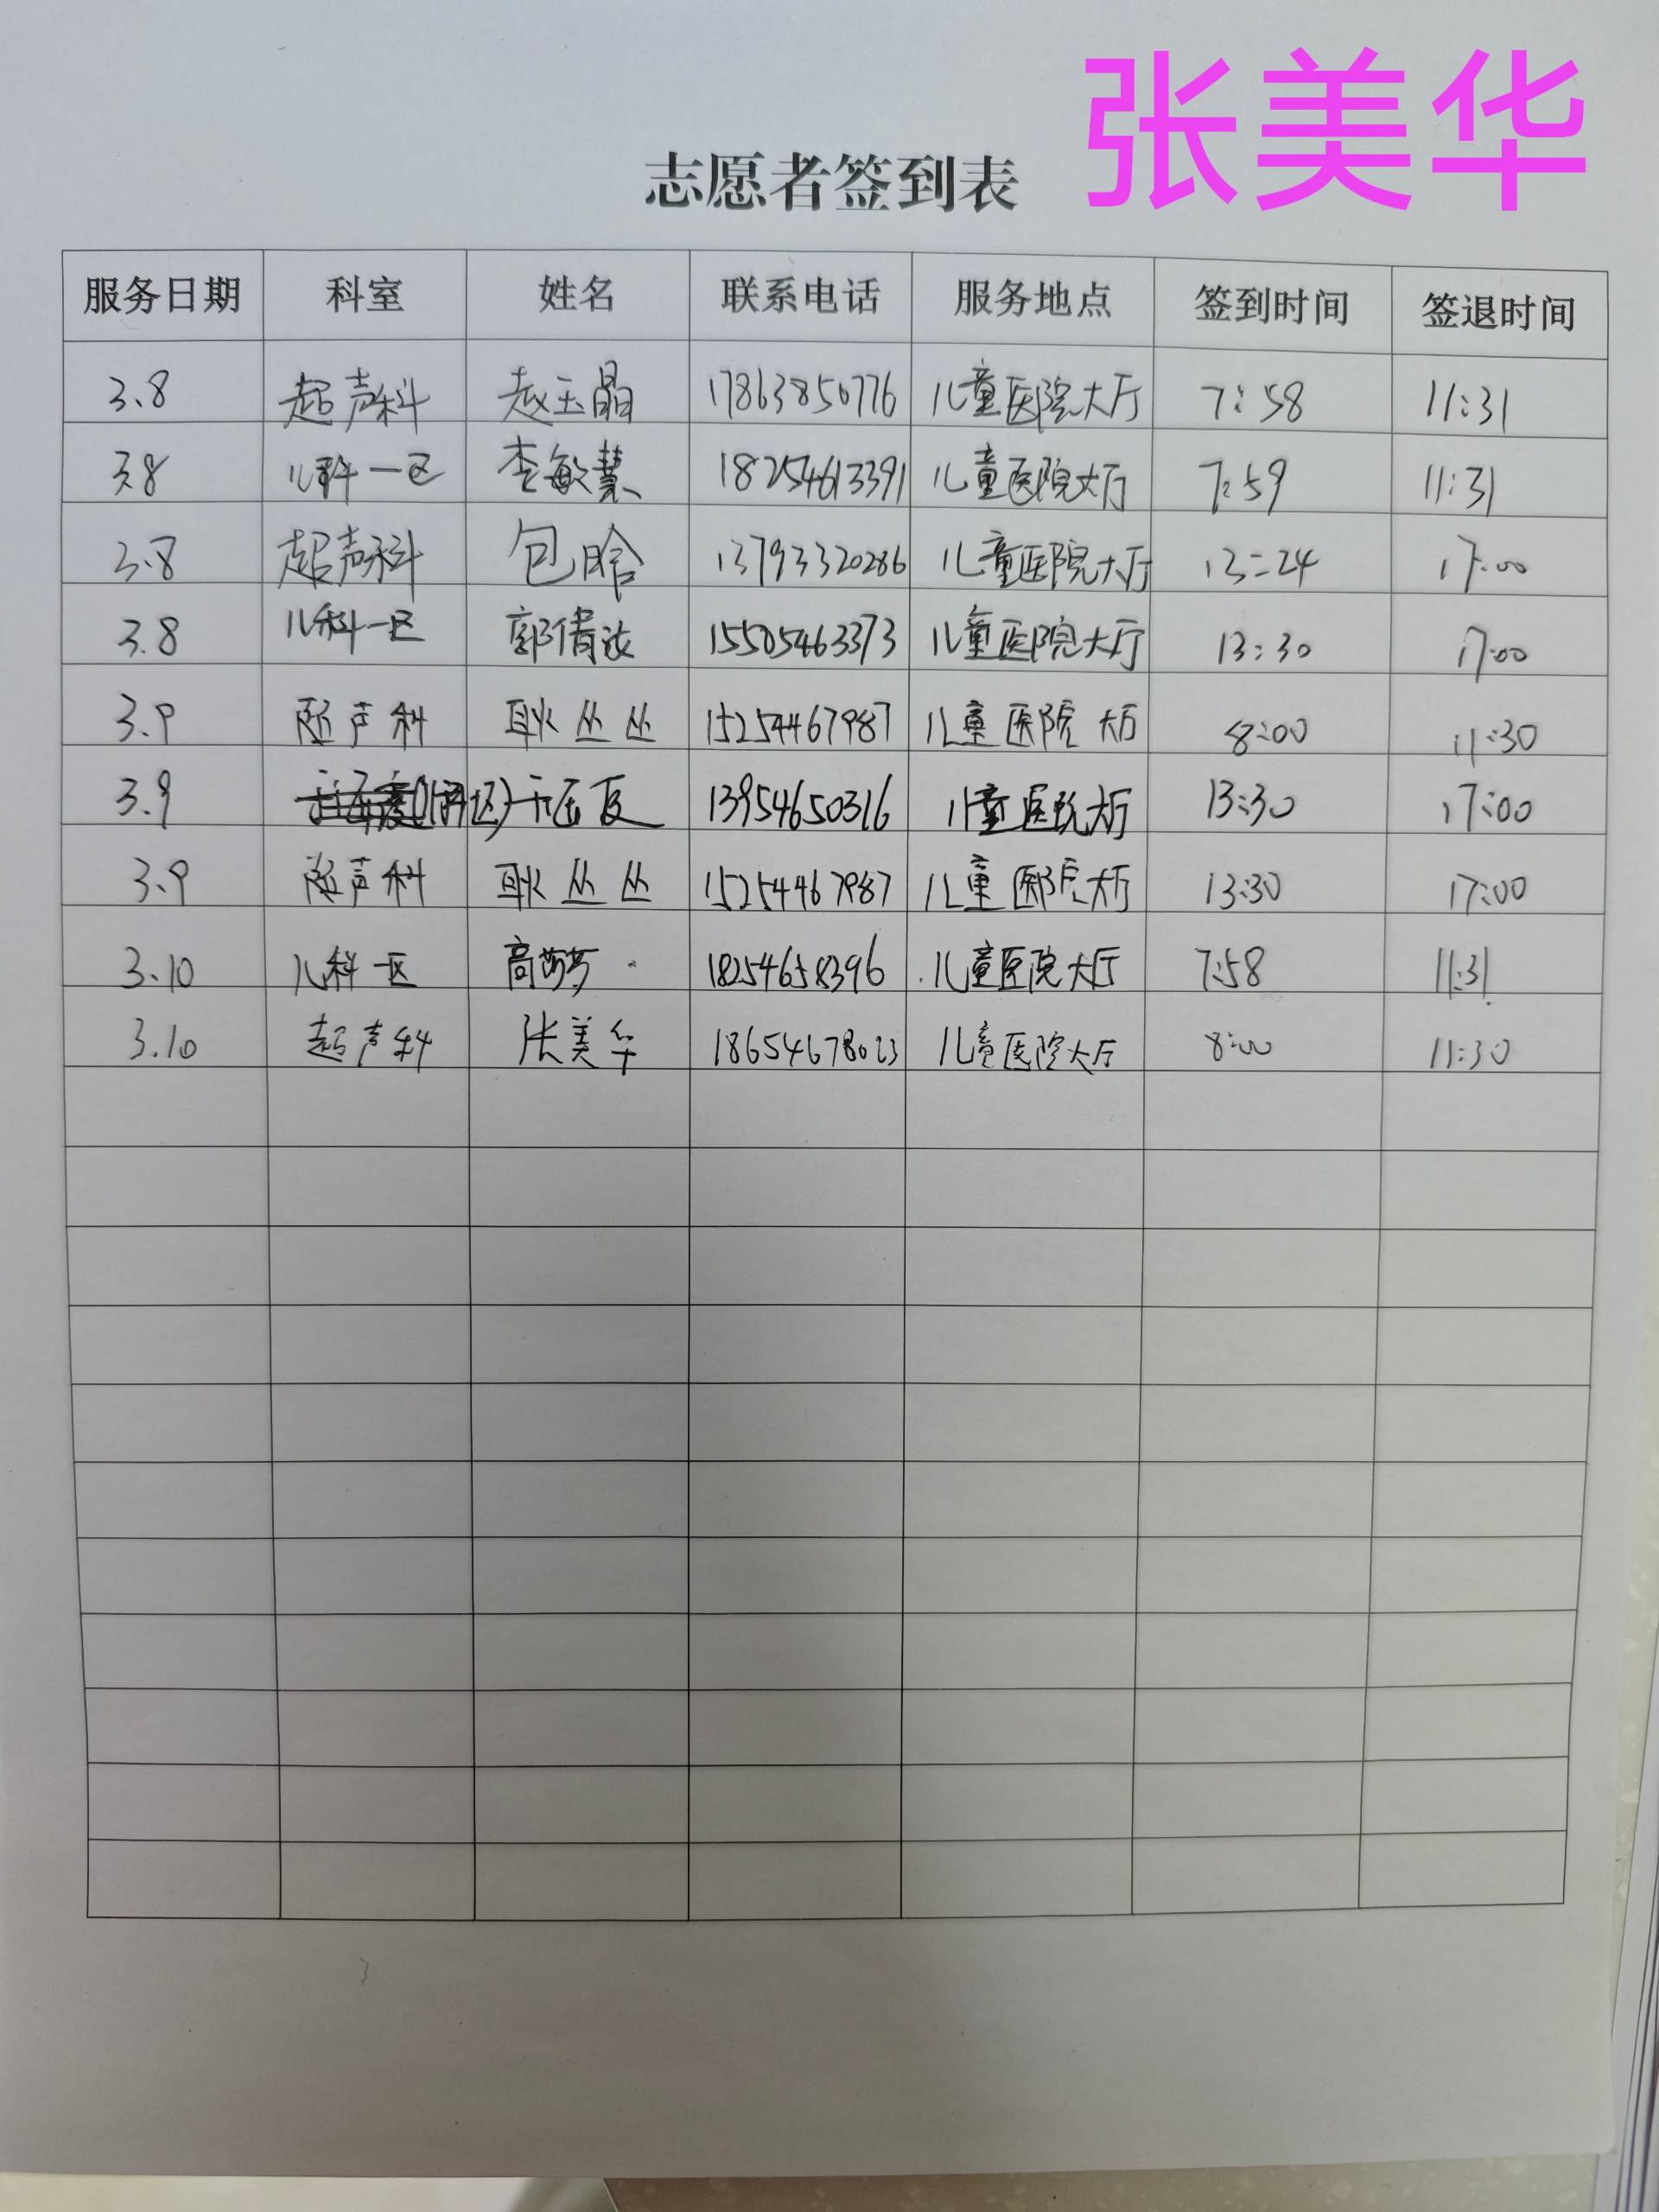 张美华
志愿者签到表
服务日期 科室 姓名 联系电话 服务地点 签到时间 签退时间
3.8 超声科 赵玉晶 17863850776 儿童医院大厅 7:58 11:31
3.8 儿科一区 李敏慧 18254613391 儿童医院大厅 7:59 11:31
3.8 超声科 包晗 13793320286 儿童医院大厅 13:24 17:00
3.8 儿科一区 郭倩 15505463373 儿童医院大厅 13:30 17:00
3.9 超声科 耿丛丛 15254467987 儿童医院大厅 8:00 11:30
3.9 13954650316 儿童医院大厅 13:30 17:00
3.9 超声科 耿丛丛 15254467987 儿童医院大厅 13:30 17:00
3.10 儿科一区 高 18254658396 儿童医院大厅 7:58 11:31
3.10 超声科 张美华 18654678023 儿童医院大厅 8:00 11:30